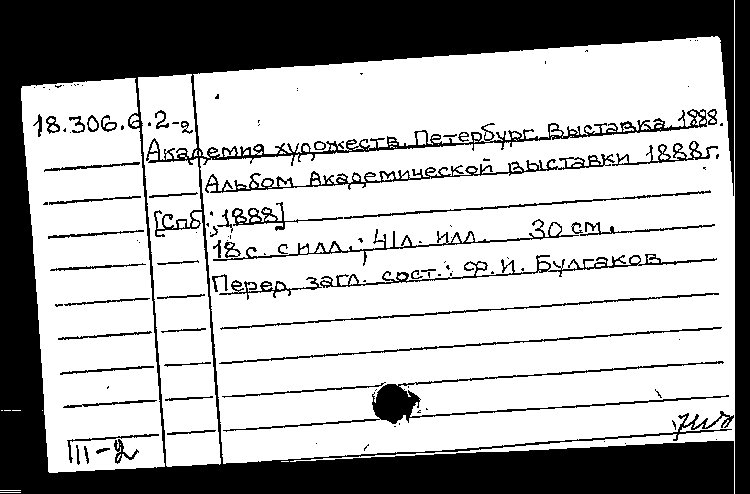 18.306.6.2-2
Академия художеств. Петербург. Выставка. 1888.
Альбом Академической выставки 1888 г.
[Спб., 1888]
18 с. с илл.; 41 л. илл. 30 см.
Перед загл. сост.: Ф. И. Булгаков.
III-2